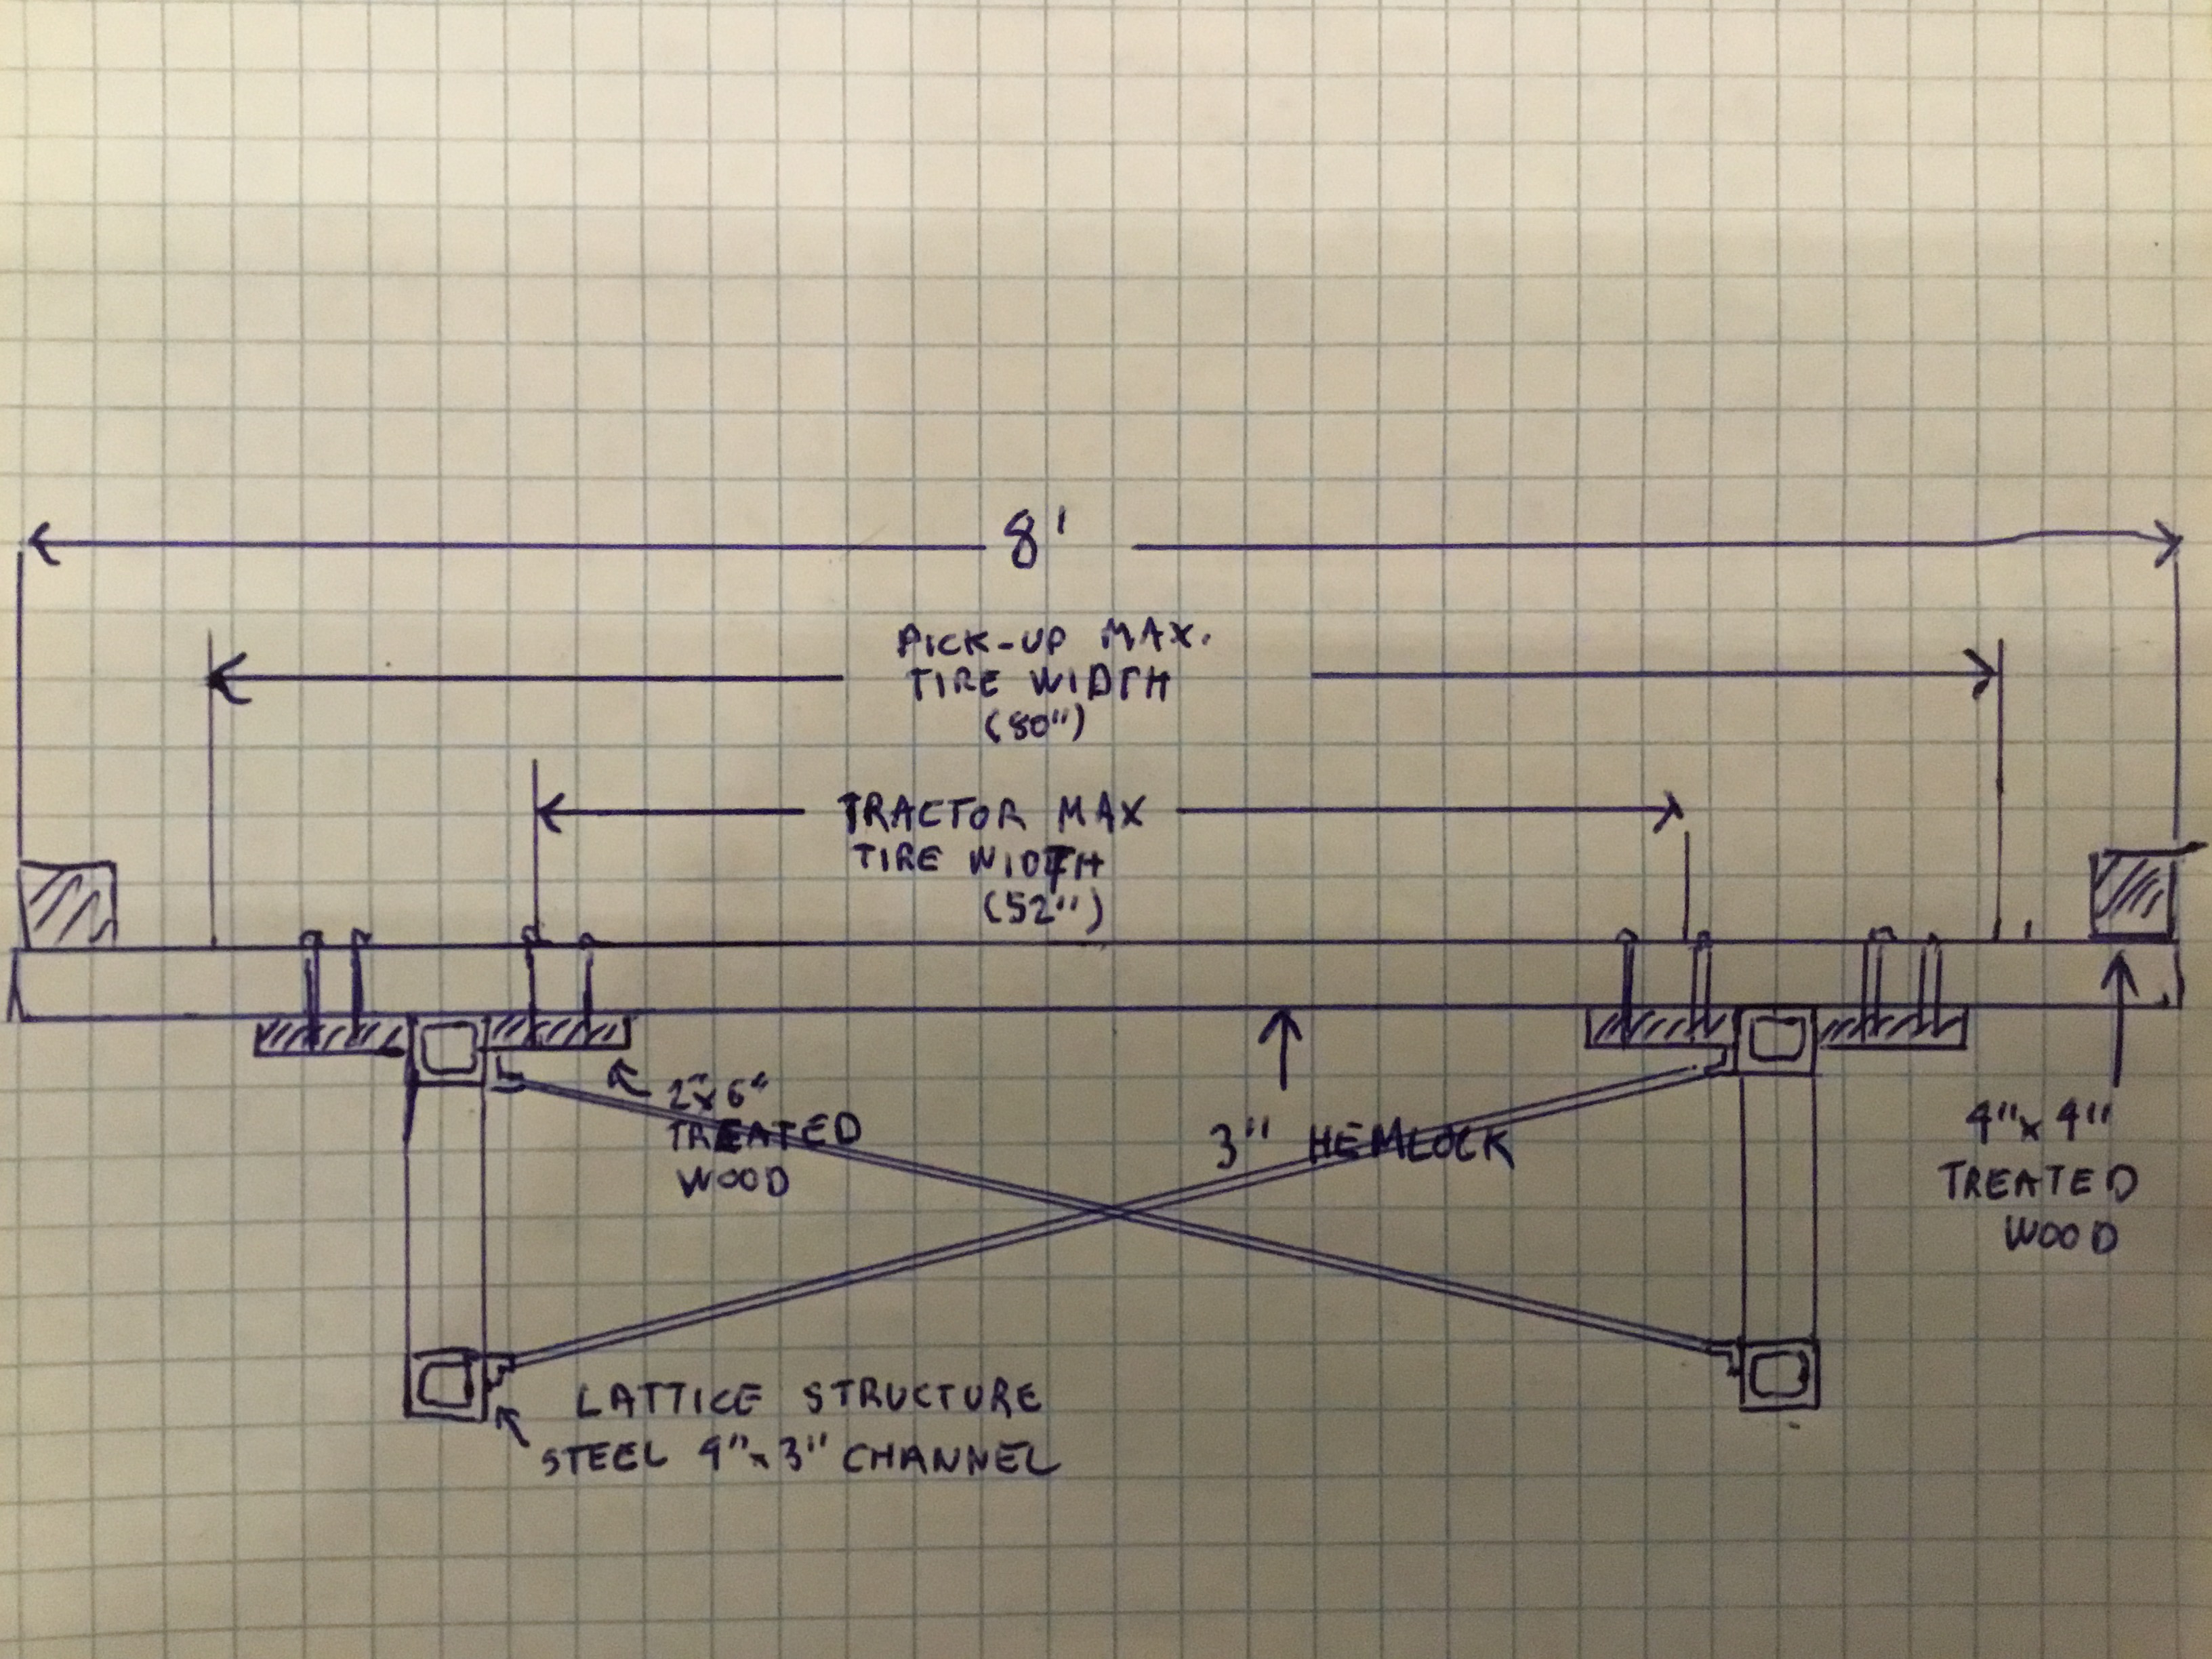 8'
PICK-UP MAX.
TIRE WIDTH
(80")
TRACTOR MAX
TIRE WIDTH
(52")
2"x6"
TREATED
WOOD
3" HEMLOCK
4"x4"
TREATED
WOOD
LATTICE STRUCTURE
STEEL 4"x3" CHANNEL